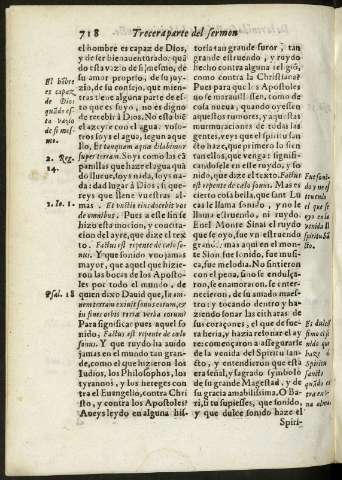 718 Trecera parte del sermon
el hombre es capaz de Dios,
y de ser bienauenturado, quã
do esta vazio de si mesmo, de
su amor proprio, de su juy-
zio, de su consejo, que mien-
tras tiene alguna parte de es-
to que es suyo, no es digno
de recebir à Dios. No esta bie
el azeyte con el agua: voso-
tros soys el agua, segun aque
llo, Et tanquam aquæ dilabimur
super terram. Soys como las cã
panillas que haze el agua quã
do llueue, soys nida, soys na-
da: dad lugar à Dios, si que-
reys que llene vuestras al-
mas. Et vultis vincederit vos
de omnibus. Pues a este fin se
hizo esta mocion, y concita-
cion del ayre, que dize el tex-
to. Factus est repente de cælo so-
nus. Y que sonido vno jamas
mayor, que aquel que hizie-
ron las bocas de los Aposto-
les por todo el mundo, de
quien dixo Dauid que, In om-
nem terram exiuit sonus eorum, et
in fines orbis terræ verba eorum?
Para significar pues aquel so-
nido, Factus est repente de cælo
sonus. Y que ruydo ha auido
jamas en el mundo tan gran-
de, como el que hizieron los
Iudios, los Philosophos, los
tyrannos, y los hereges con-
tra el Euangelio, contra Chri
sto, y contra los Apostoles?
Aueys leydo en alguna his-
El hõbre
es capaz
de Dios
quãdo es-
ta vazio
de si mes-
mo.
2. Reg.
14.
1. Io. 1.
Psal. 18
toria tan grande furor, tan
grande estruendo, y ruydo
hecho contra alguna religiõ,
como contra la Christiana?
Pues para que los Apostoles
no se marauillassen, como de
cosa nueua, quando oyessen
aquellos rumores, y aquellas
murmuraciones de todas las
gentes, veys que el spiritu san
cto haze, que quando les po-
nen sus lenguas como pone
tuellos, que vengas signifi-
candosele en este ruydo, y so-
nido, que dize el texto. Factus
est repente de cælo sonus. Mas es
cierto cosa bella, que sant Lu
cas le llama sonido, y no le
llama estruendo, ni ruydo.
En el Monte Sinai el ruydo
que se oyo, fue vn estruendo
grande: mas aqui en el mon-
te Sion fue sonido, fue musi-
ca, fue melodia. No sintieron
con el pena, sino se endulça-
ron, se enamoraron, se enter-
necieron, de su amado maes-
tro y tocando dentro y ha-
ziendo sonar las citharas de
sus coraçones, el que de fue-
ra heria, y hazia resonar el ay
re: començaron a assegurarse
de la venida del Spiritu san-
cto, y entendieron que esta
era señal, y sagrado symbolo
de su grande Magestad, y de
su gracia amabilissima. O Ba-
ri, si tu supiesses, que sonido,
y que dulce sonido haze el
Spiri-